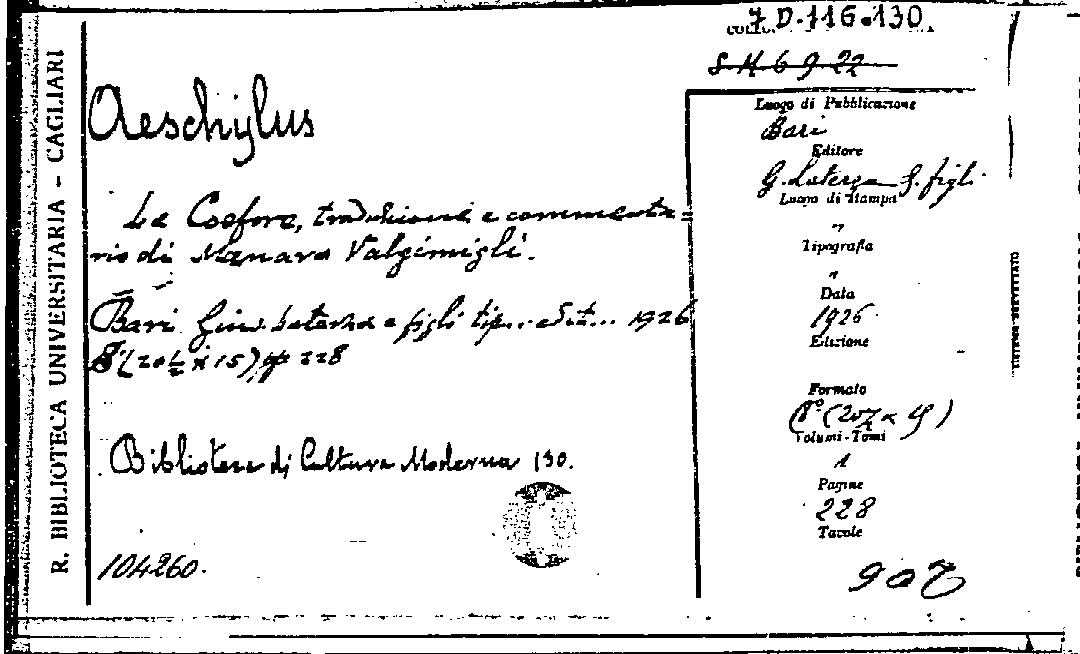 7.D.116.130
S.H.6 9.22
R. BIBLIOTECA UNIVERSITARIA - CAGLIARI
Aeschylus
Le Coefore, traduzione e commenta=
rio di Manara Valgimigli.
Bari Gius. Laterza e figli tip.. edit... 1926
8°(20½ x 15) pp 228
Biblioteca di Cultura Moderna 130.
104260.
Luogo di Pubblicazione
Bari
Editore
G. Laterza & figli
Luogo di Stampa
"
Tipografia
"
Data
1926
Edizione
Formato
8° (20½ x 15)
Volumi-Tomi
1
Pagine
228
Tavole
907